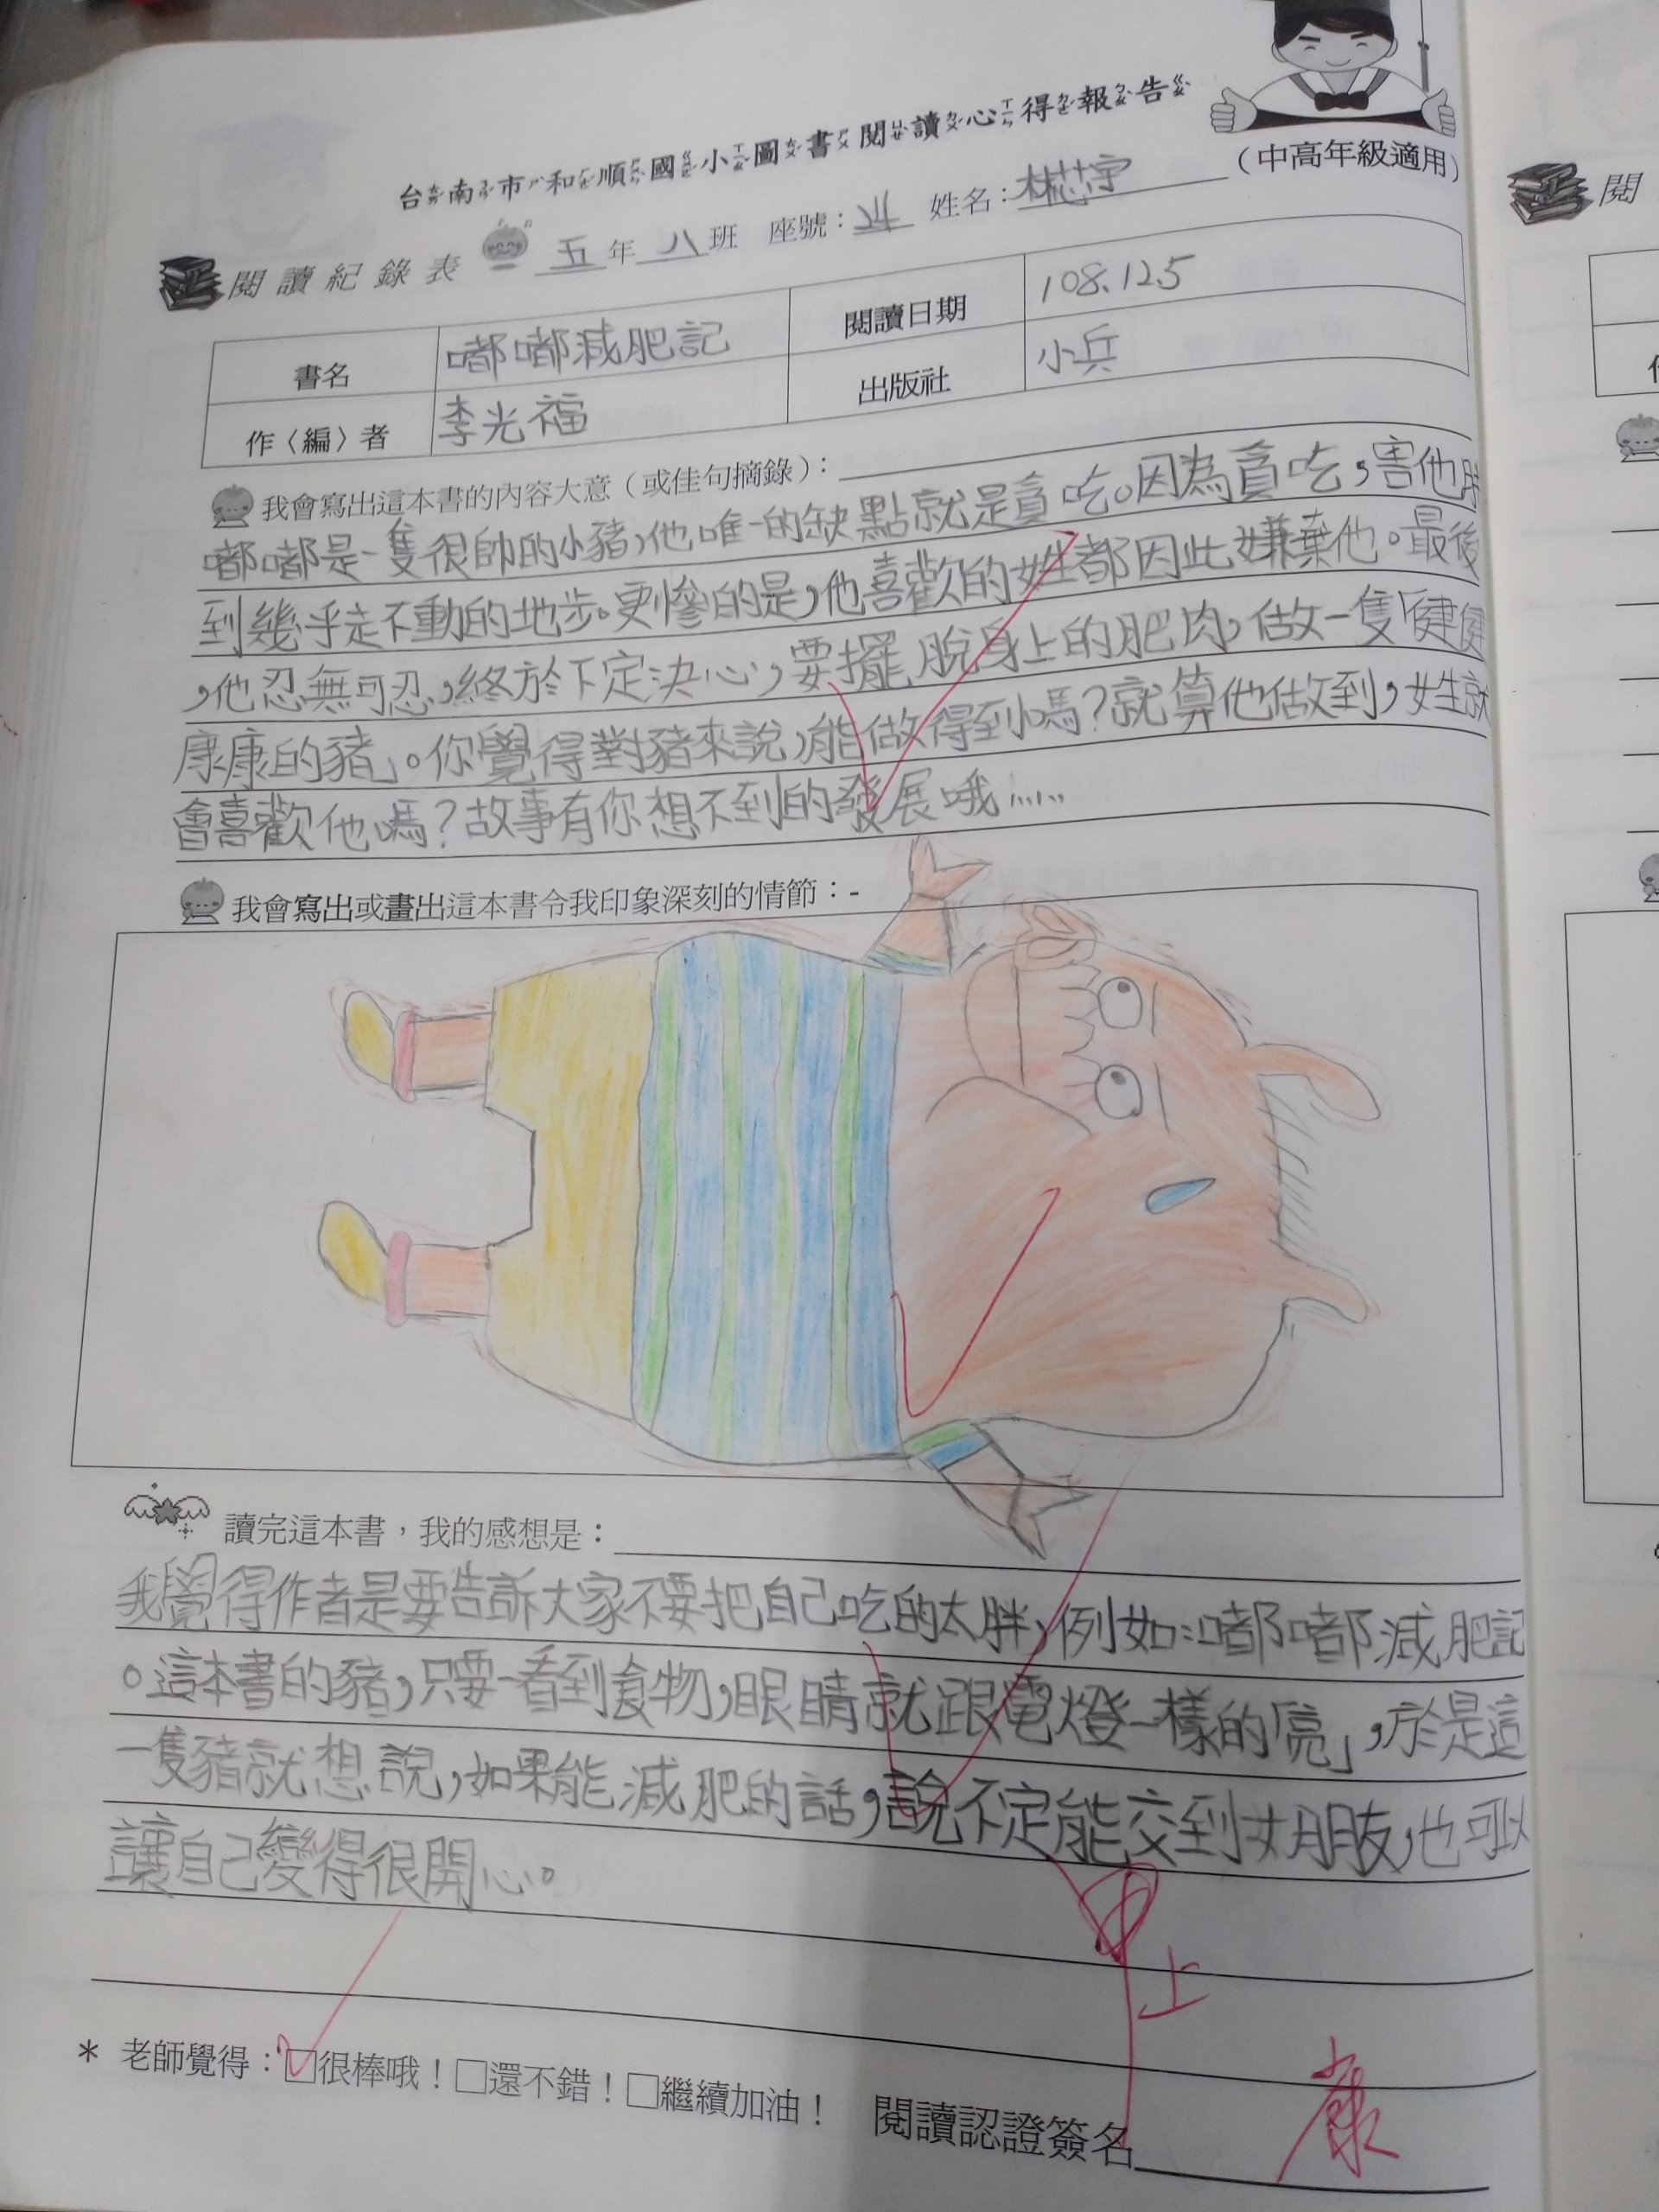 台南市和順國小圖書閱讀心得報告
(中高年級適用)
閱讀紀錄表 五年八班 座號：24 姓名：林芯宇
書名 嘟嘟減肥記 閱讀日期 108.12.5
作〈編〉者 李光福 出版社 小兵
我會寫出這本書的內容大意（或佳句摘錄）：
嘟嘟是一隻很帥的小豬,他唯一的缺點就是貪吃。因為貪吃,害他胖
到幾乎走不動的地步。更慘的是,他喜歡的女生都因此嫌棄他。最後
,他忍無可忍,終於下定決心,要擺脫身上的肥肉,做一隻「健健
康康的豬」。你覺得對豬來說,能做得到嗎?就算他做到,女生就
會喜歡他嗎?故事有你想不到的發展哦……
我會寫出或畫出這本書令我印象深刻的情節：-
讀完這本書，我的感想是：
我覺得作者是要告訴大家不要把自己吃的太胖,例如:嘟嘟減肥記
。這本書的豬,只要一看到食物,眼睛就跟電燈一樣的「亮」,於是這
一隻豬就想說,如果能減肥的話,說不定能交到女朋友,也可以
讓自己變得很開心。
甲上
* 老師覺得：□很棒哦！□還不錯！□繼續加油！ 閱讀認證簽名
閱